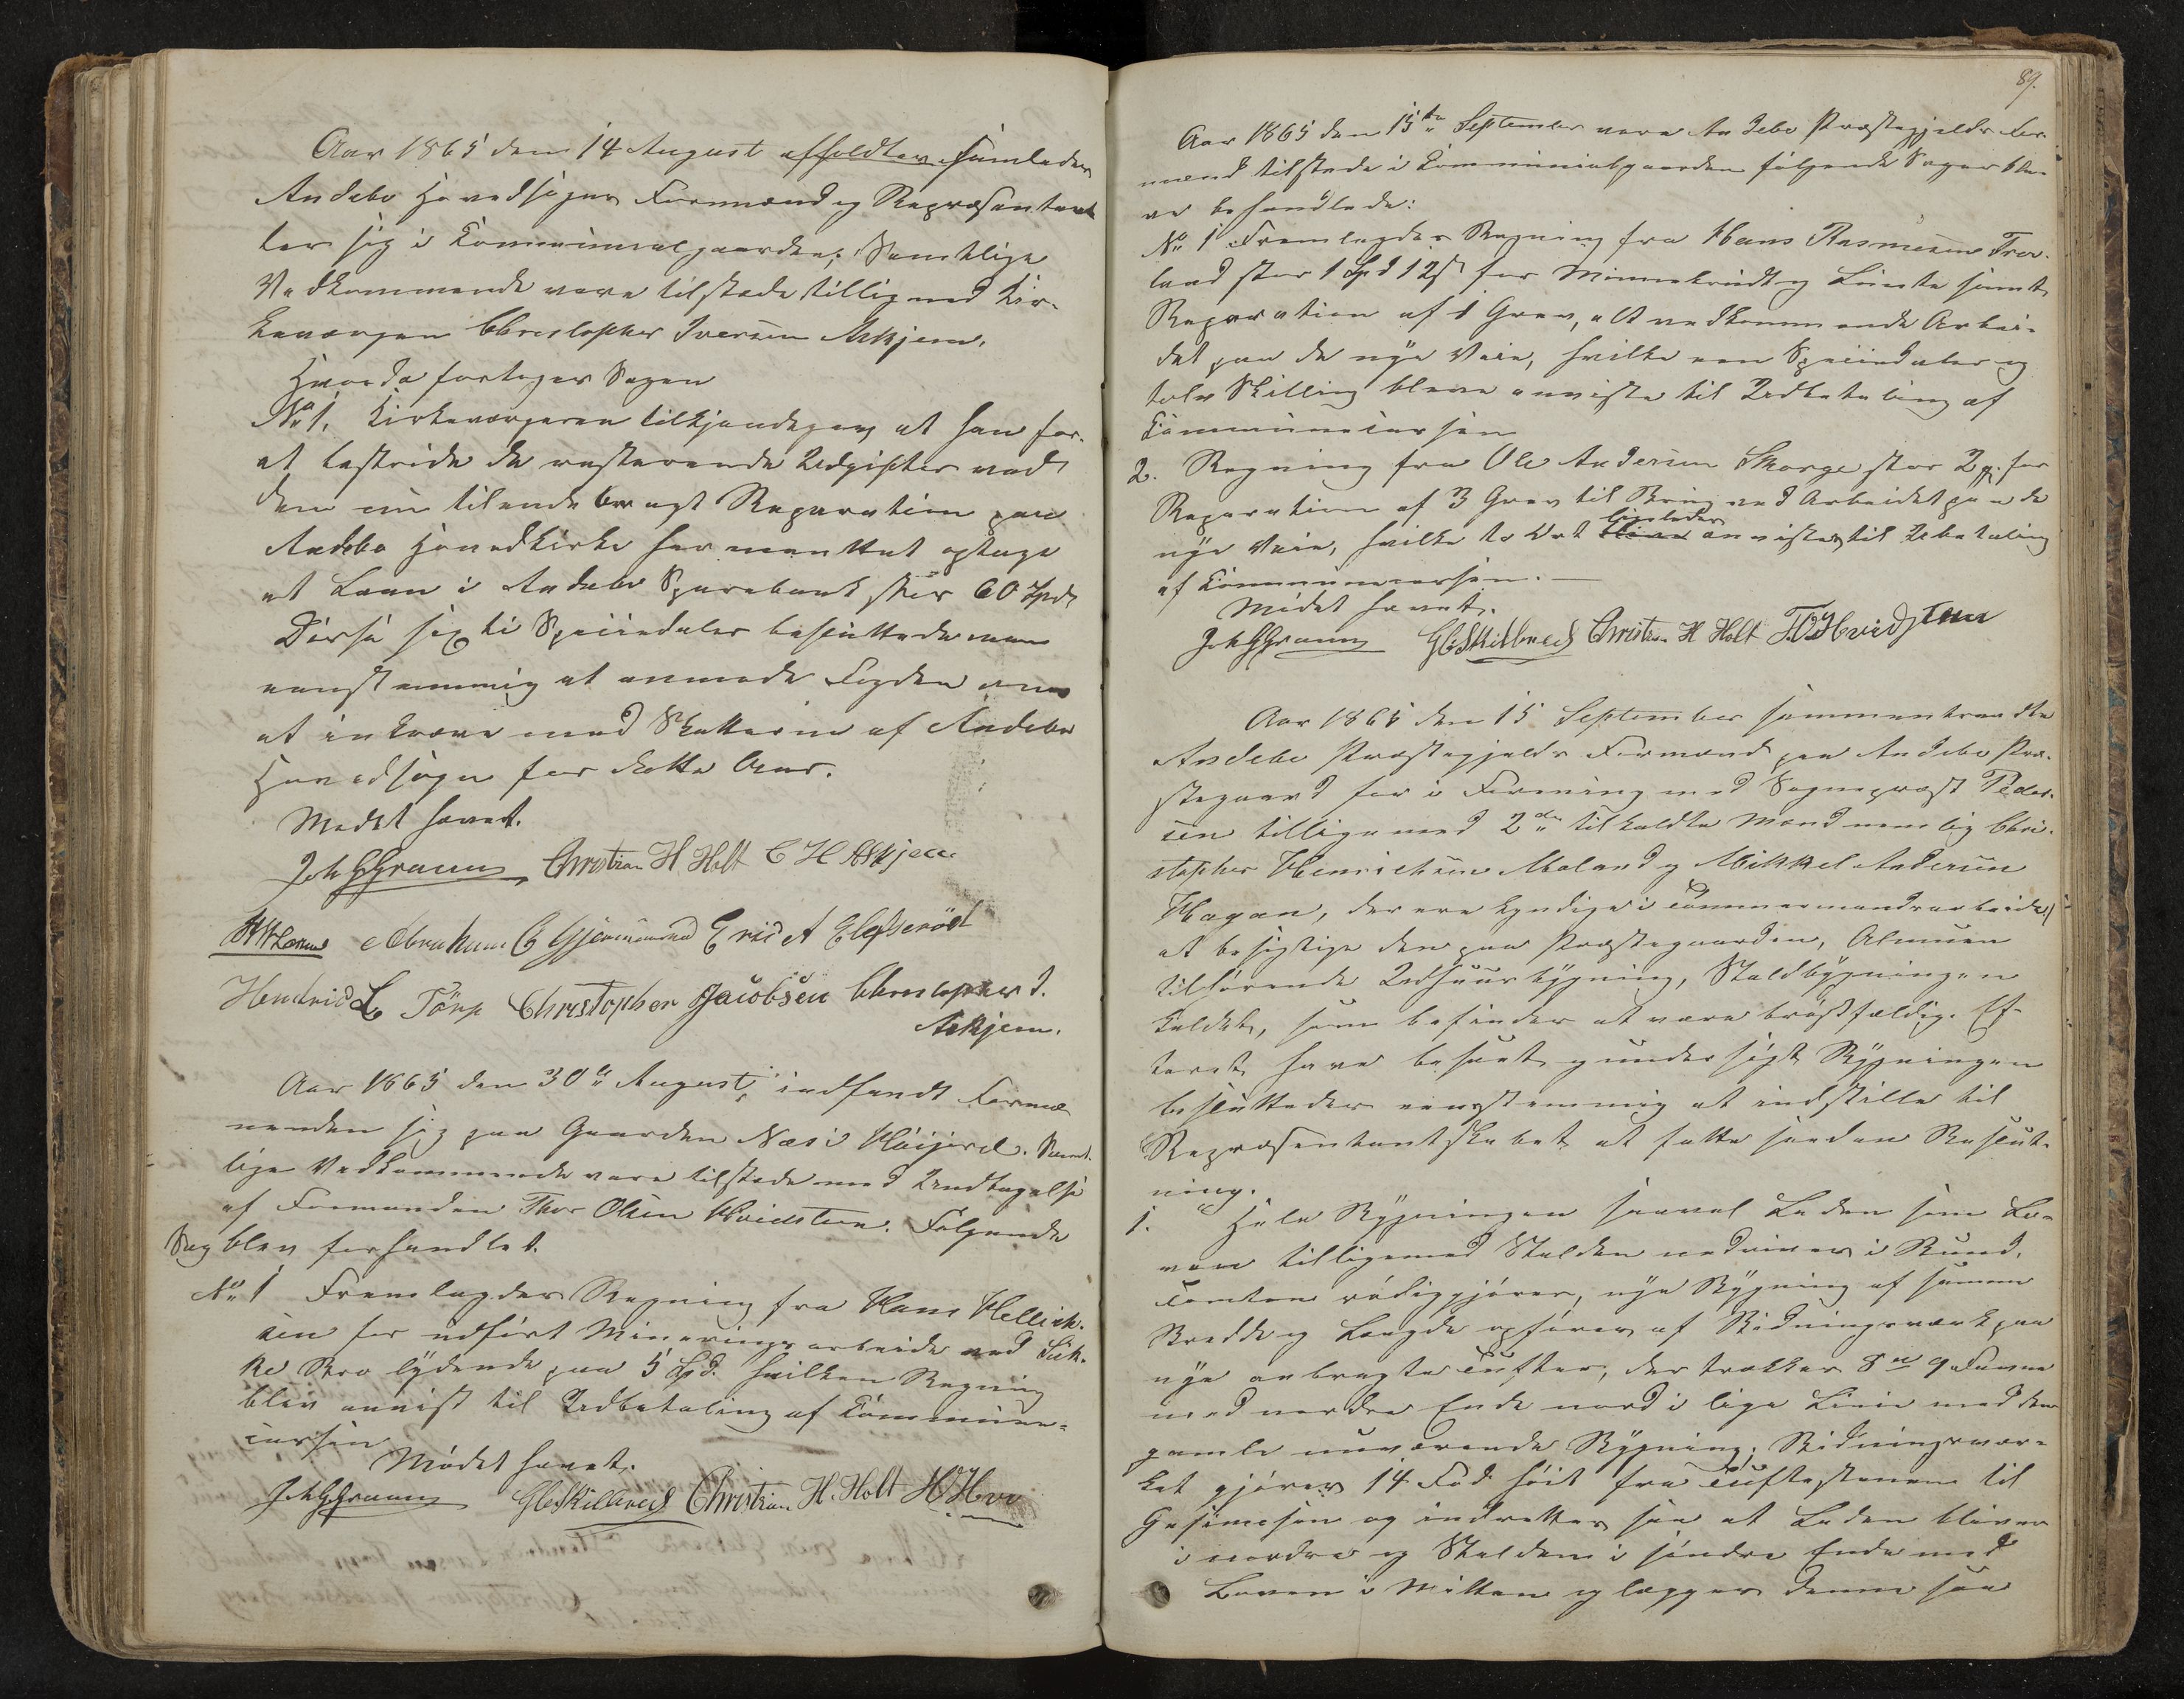 Aar 1865 den 14 August affholdtes samledes
Andebo Hovedsogns Formænd og Repræsentan
ter sig i Communalgaarden; Samtlige
Vedkommende vare tilstede tilligemed Kir-
keværgen Christopher Iversen Askjem.
Hvorda fortoges Sagen
No 1, Kirkeværgeren tilkjendegav at han for
at bestride de resterende Udgifter ved
den nu tilendebragt Reparation paa
Andebo Hovedkirke har maattet optage
et Laan i Andebo Sparebank stor 60 Spd
Disse sexti Speciedaler besluttede man
eenstemmig at anmode Fogden om
at inkræve med Skatterne af Andebo
Hovedsogn for dette Aar.
Mødet hævet.
Joh GGraun Christian H. Holt C H Askjem
Abraham C Gjermundsen Eric A
Hendric L Törp Christopher Jacobsen Christopher I.
Askjem.
Aar 1865 den 30te August, indfandt Formæ
nænden sig paa Gaarden Næs i Høijord. Samt-
lige Vedkommende vare tilstede med Undtagelse
af Formanden Thor Olsen Hvidsteen. Følgende
Sag blev forhandlet.
No 1 Fremlagdes Regning fra Hans Hellick-
sen for udført Mineringsarbeide ved
Bro lydende paa 5 Spd. hvilken Regning
blev anvist til Udbetaling af Commune-
cassen
Mødet hævet.
Joh GGraun GCSkilbred Christian H. Holt
89.
Aar 1865 den 15de September vare Andebo Præstegjelds For-
mænd tilstede i Communalgaarden følgende Sager ble-
ve behandlede:
No 1 Fremlagdes Regning fra Hans Rasmusen
land stor 1 Spd 12 s for Minnekrudt og Lunte samt
Reparation af 1 Grev, alt vedkommende Arbei-
det paa de nye Veie, hvilke een Speciedaler og
tolv Skilling bleve anviste til Udbetaling af
Communecassen
2. Regning fra Ole Andersen Skorge stor 2 for
Reparation af 3 Grev til Brug ved Arbeidet paa de
nye Veie, hvilke to Ort ligeledes anvistes til Ubetaling
af Communecassen. —
Mødet hævet.
Joh GGraun GCSkilbred Christian H Holt TOHvidsteen
Aar 1865 den 15 September sammentraadte
Andebo Præstegjelds Formænd paa Andebo Præ-
stegaard for i Forening med Sognepræst Peder-
sen tilligemed 2de tilkaldte Mænd nemlig Chri-
stopher Henrichsen Møland og Mikkel Andersen
Hagan, der ere kyndige i Tømmermandsarbeide,
at besigtige den paa Præstegaarden, Almuen
tilhørende Udhuusbygning, Staldbygningen
kaldet, som befindes at være brøstfældig. Ef-
terat have beseet og undersøgt Bygningen
besluttedes eenstemmig at indstille til
Repræsentantskabet at fatte saadan Beslut-
ning.
1. Hele Bygningen saavel Laden som Lo-
ven tilligemed Stalden nedrives i Bund,
Tomten rødiggjøres, nye Bygning af samme
Bredde og Længde opføres af Bidningsværk paa
nye anbragte Tufter, der trækkes 8 a 9 Favne
med nordre Ende nord i lige Linie med den
gamle nuværende Bygning; Bidningsvær-
ket gjøres 14 Fod høit fra Tuftestenene til
Gesimsen og indrettes saa at Laden bliver
i nordre og Stalden i søndre Ende med
Loven i Mitten og lægges denne saa